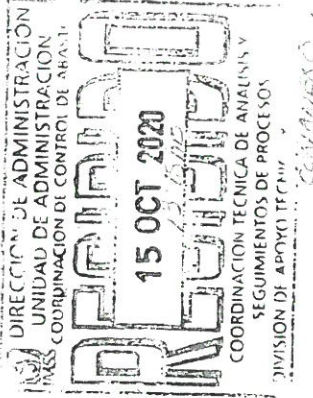 DIRECCIÓN DE ADMINISTRACIÓN
UNIDAD DE ADMINISTRACIÓN
IMSS COORDINACIÓN DE CONTROL DE ABASTO
RECIBIDO
15 OCT 2020
COORDINACIÓN TECNICA DE ANALISIS Y
SEGUIMIENTOS DE PROCESOS
DIVISIÓN DE APOYO